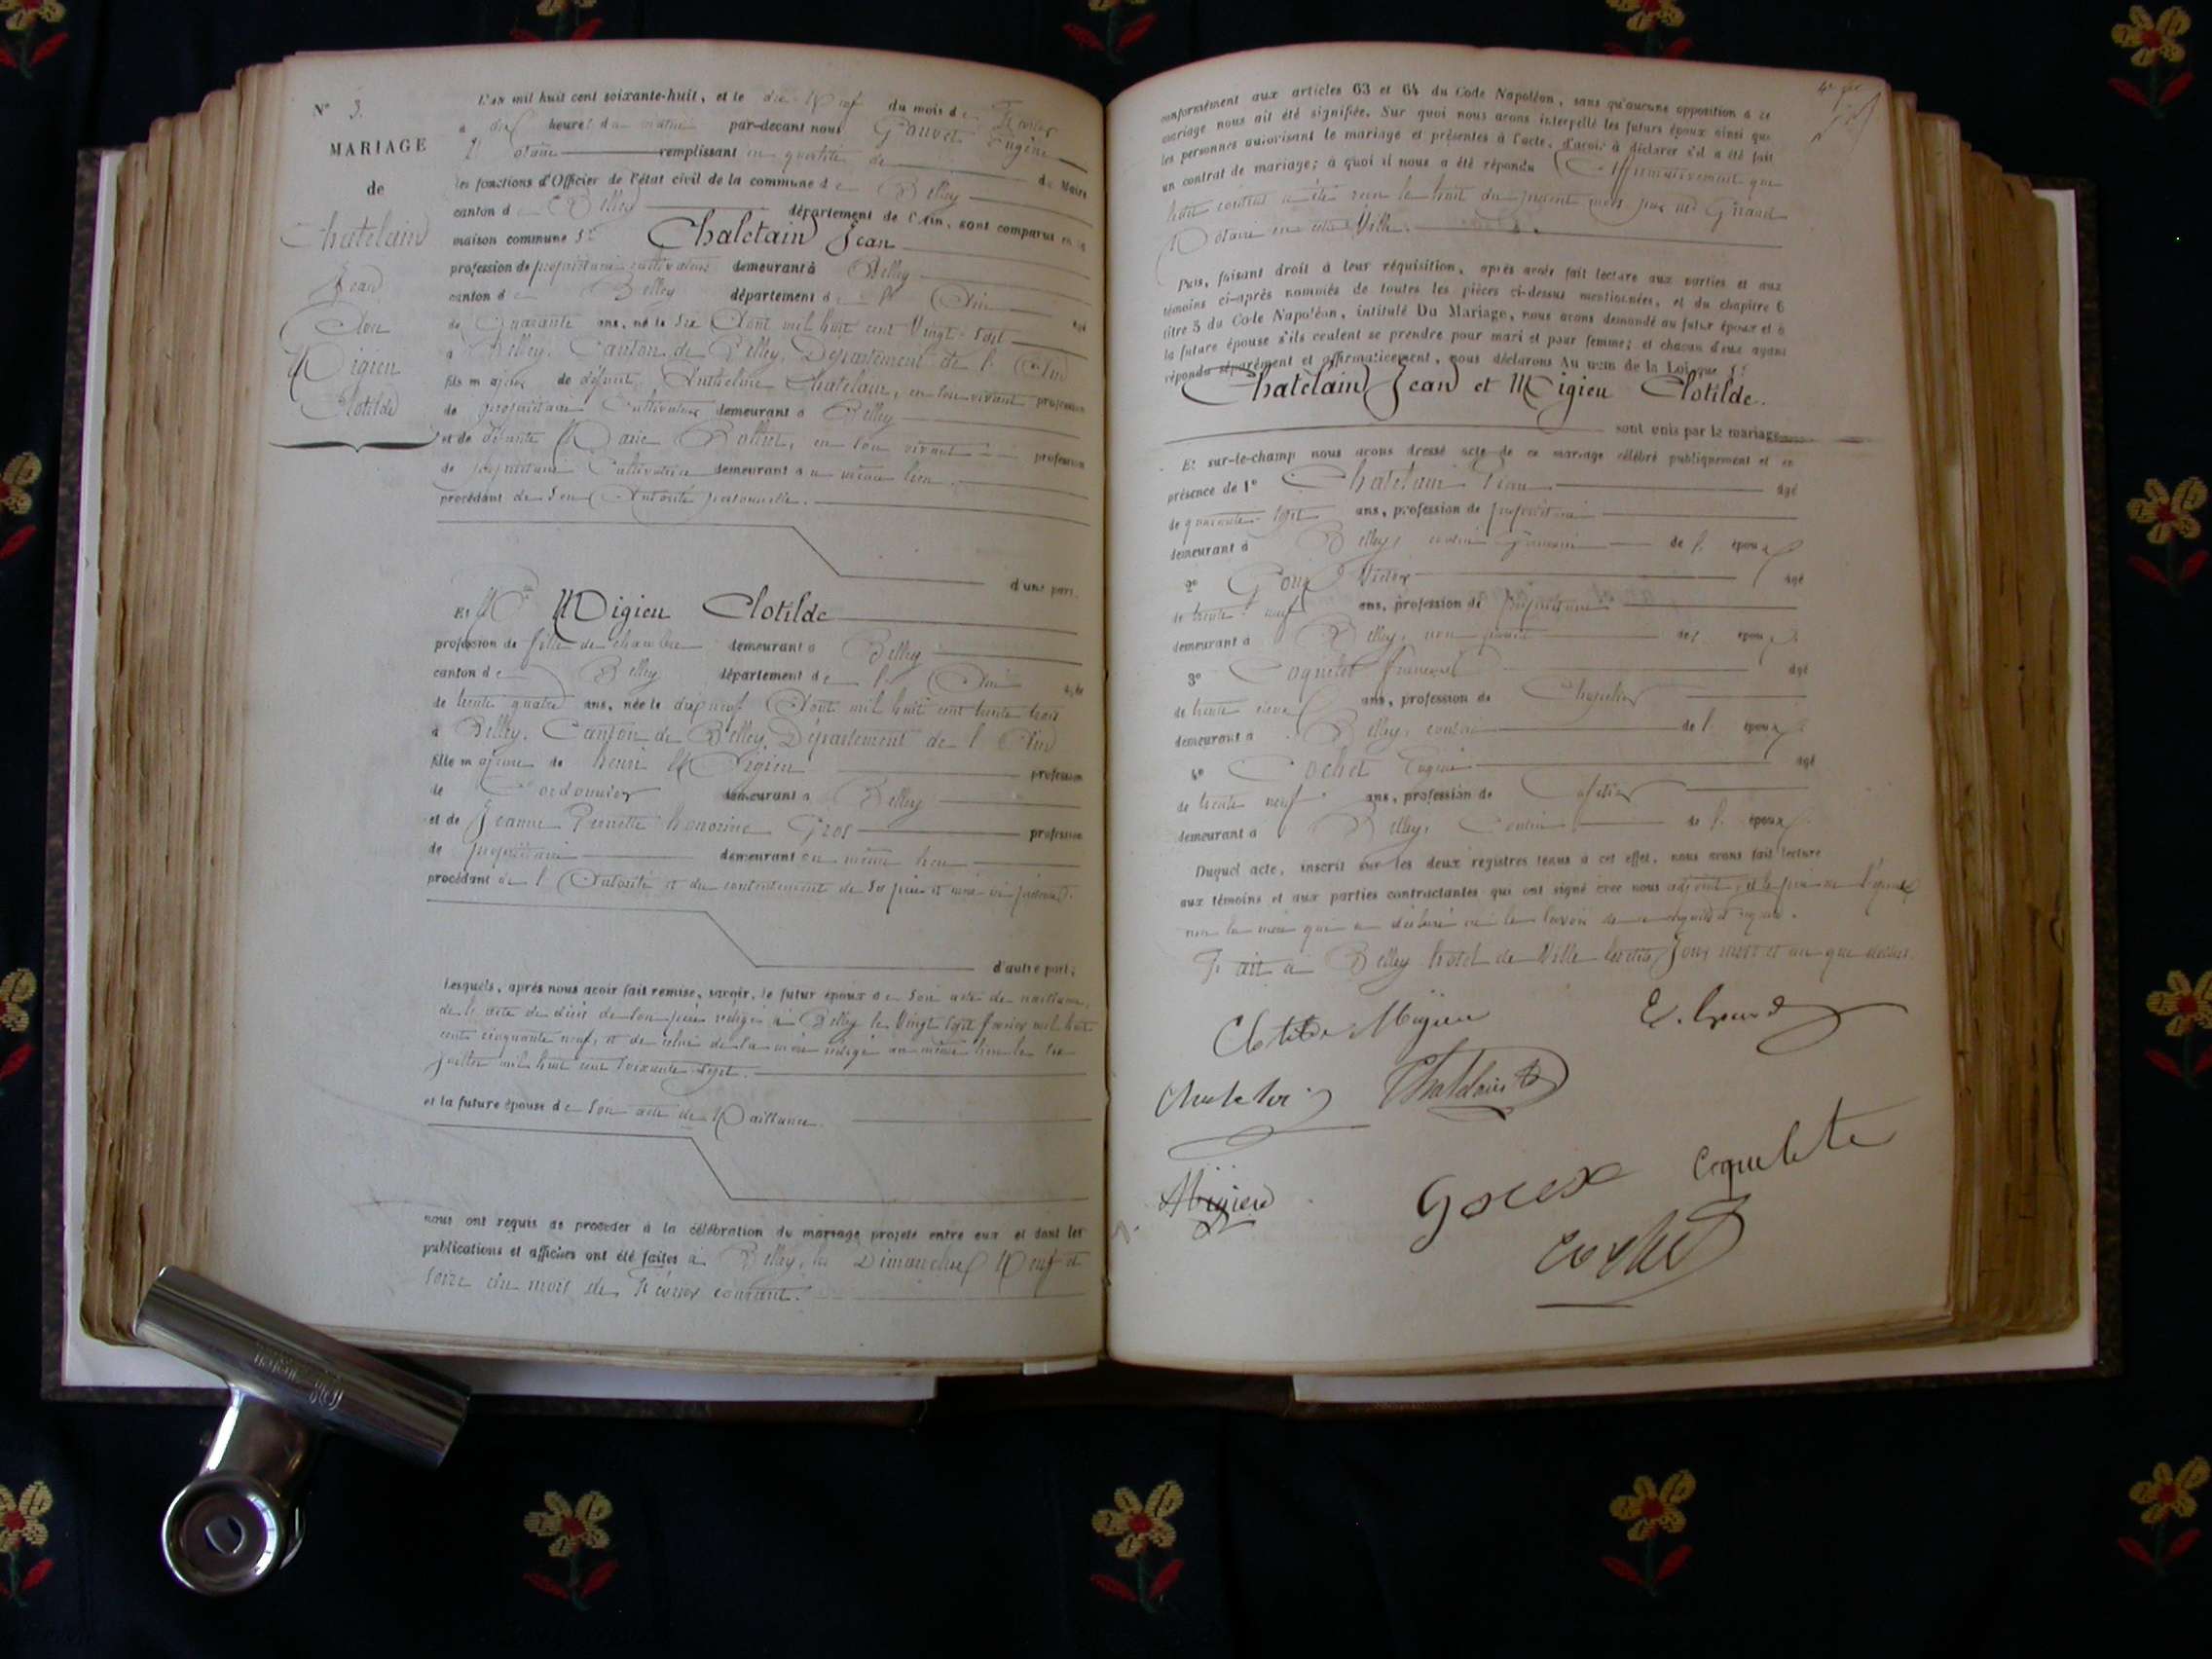 N° 3.
MARIAGE
de
Chatelain
Jean
Migieu
Clotilde
L'an mil huit cent soixante-huit, et le dix Neuf du mois de Février
à dix heures du matin par-devant nous Gauvet Eugène
Notaire remplissant en qualité de du Maire
les fonctions d'Officier de l'état civil de la commune de Belley
canton de Belley département de l'Ain, sont comparus en la
maison commune Sr Chatelain Jean
profession de propriétaire cultivateur demeurant à Belley
canton de Belley département de l' Ain âgé
de Quarante ans, né le Six Août mil huit cent Vingt-Sept
à Belley, Canton de Belley, Département de l'Ain
fils majeur de défunt Anthelme Chatelain, en son vivant profession
de propriétaire Cultivateur demeurant à Belley
et de défunte Marie en son vivant profession
de propriétaire Cultivatrice demeurant au même lieu.
procédant de Son Autorité personnelle.
d'une part.
Et Migieu Clotilde
profession de fille de chambre demeurant à Belley
canton de Belley département de l' Ain âgée
de trente quatre ans, née le dix neuf Août mil huit cent trente trois
à Belley, Canton de Belley, Département de l'Ain
fille majeure de henri Migieu profession
de Cordonnier demeurant à Belley
et de Jeanne Pernette honorine Gros profession
de propriétaire demeurant au même lieu
procédant de l'Autorité et du consentement de Ses père et mère ici présents.
d'autre part;
Lesquels, après nous avoir fait remise, savoir, le futur époux de Son acte de naissance,
de l'acte de décès de son père rédigé à Belley le Vingt Sept février mil huit
cent cinquante neuf, et de celui de sa mère rédigé au même lieu le
juillet mil huit cent Soixante Sept.
et la future épouse de Son acte de Naissance.
nous ont requis de procéder à la célébration du mariage projeté entre eux et dont les
publications et affiches ont été faites à Belley, les Dimanches Neuf et
Seize du mois de Février courant.
conformément aux articles 63 et 64 du Code Napoléon, sans qu'aucune opposition à ce
mariage nous ait été signifiée. Sur quoi nous avons interpellé les futurs époux ainsi que
les personnes autorisant le mariage et présentes à l'acte, d'avoir à déclarer s'il a été fait
un contrat de mariage; à quoi il nous a été répondu Affirmativement que
ledit contrat a été reçu le huit du présent mois par Me Girand
Notaire en cette Ville.
Puis, faisant droit à leur réquisition, après avoir fait lecture aux parties et aux
témoins ci-après nommés de toutes les pièces ci-dessus mentionnées, et du chapitre 6
titre 5 du Code Napoléon, intitulé Du Mariage, nous avons demandé au futur époux et à
la future épouse s'ils veulent se prendre pour mari et pour femme; et chacun d'eux ayant
répondu séparément et affirmativement, nous déclarons Au nom de la Loi que Sr
Chatelain Jean et Migieu Clotilde.
sont unis par le mariage.
Et sur-le-champ nous avons dressé acte de ce mariage célébré publiquement et en
présence de 1° Chatelain Jean âgé
de quarante-Sept ans, profession de propriétaire
demeurant à Belley, cousin Germain de l' époux
2° Goux Victor âgé
de trente neuf ans, profession de propriétaire
demeurant à Belley, non parent de l' époux
3° Coquelet François âgé
de trente ans, profession de Chapelier
demeurant à Belley, cousin de l' époux
4° Cochet Eugène âgé
de trente neuf ans, profession de Cafetier
demeurant à Belley, Cousin de l' époux
Duquel acte, inscrit sur les deux registres tenus à cet effet, nous avons fait lecture
aux témoins et aux parties contractantes qui ont signé avec nous adjoint, et le père de l'épouse
non la mère qui a déclaré ne le Savoir de ce enquise et requise.
Fait à Belley hôtel de Ville lesdits Jour, mois et an que dessus.
Clotilde Migieu
Chatelain
Chatelain
Migieu
Goux
Coquelet
Cochet